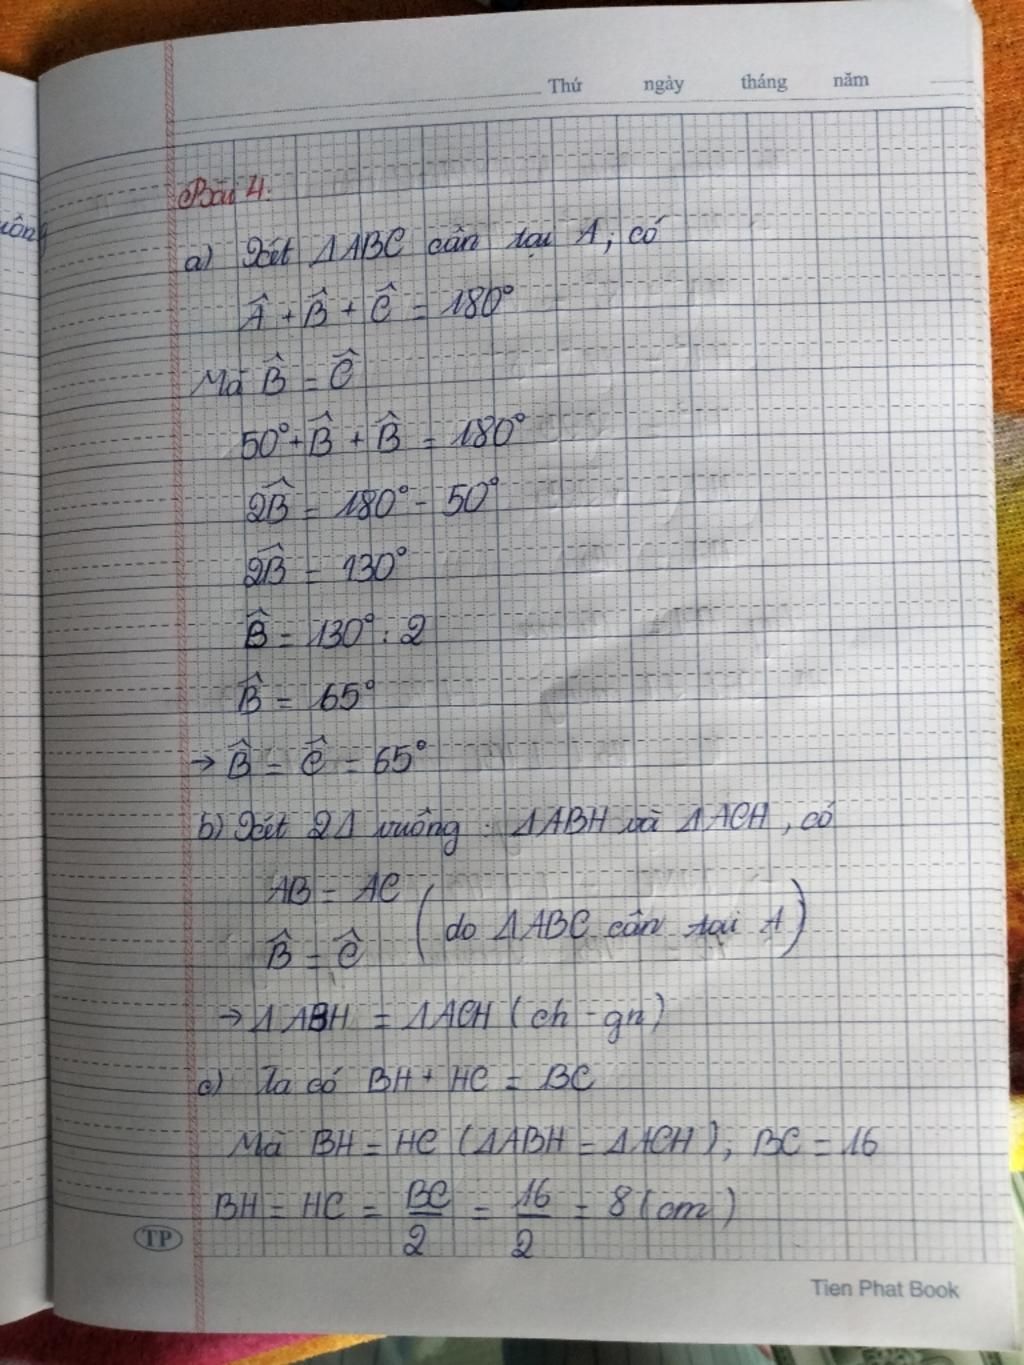 Thứ ngày tháng năm
uông
Bài 4.
a) Xét ΔABC cân tại A, có
Â + B̂ + Ĉ = 180°
Mà B̂ = Ĉ
50° + B̂ + B̂ = 180°
2B̂ = 180° - 50°
2B̂ = 130°
B̂ = 130° : 2
B̂ = 65°
→ B̂ = Ĉ = 65°
b) Xét 2Δ vuông : ΔABH và ΔACH, có
AB = AC
B̂ = Ĉ (do ΔABC cân tại A)
→ ΔABH = ΔACH (ch - gn)
c) Ta có BH + HC = BC
Mà BH = HC (ΔABH = ΔACH), BC = 16
BH = HC = BC/2 = 16/2 = 8 (cm)
TP
Tien Phat Book